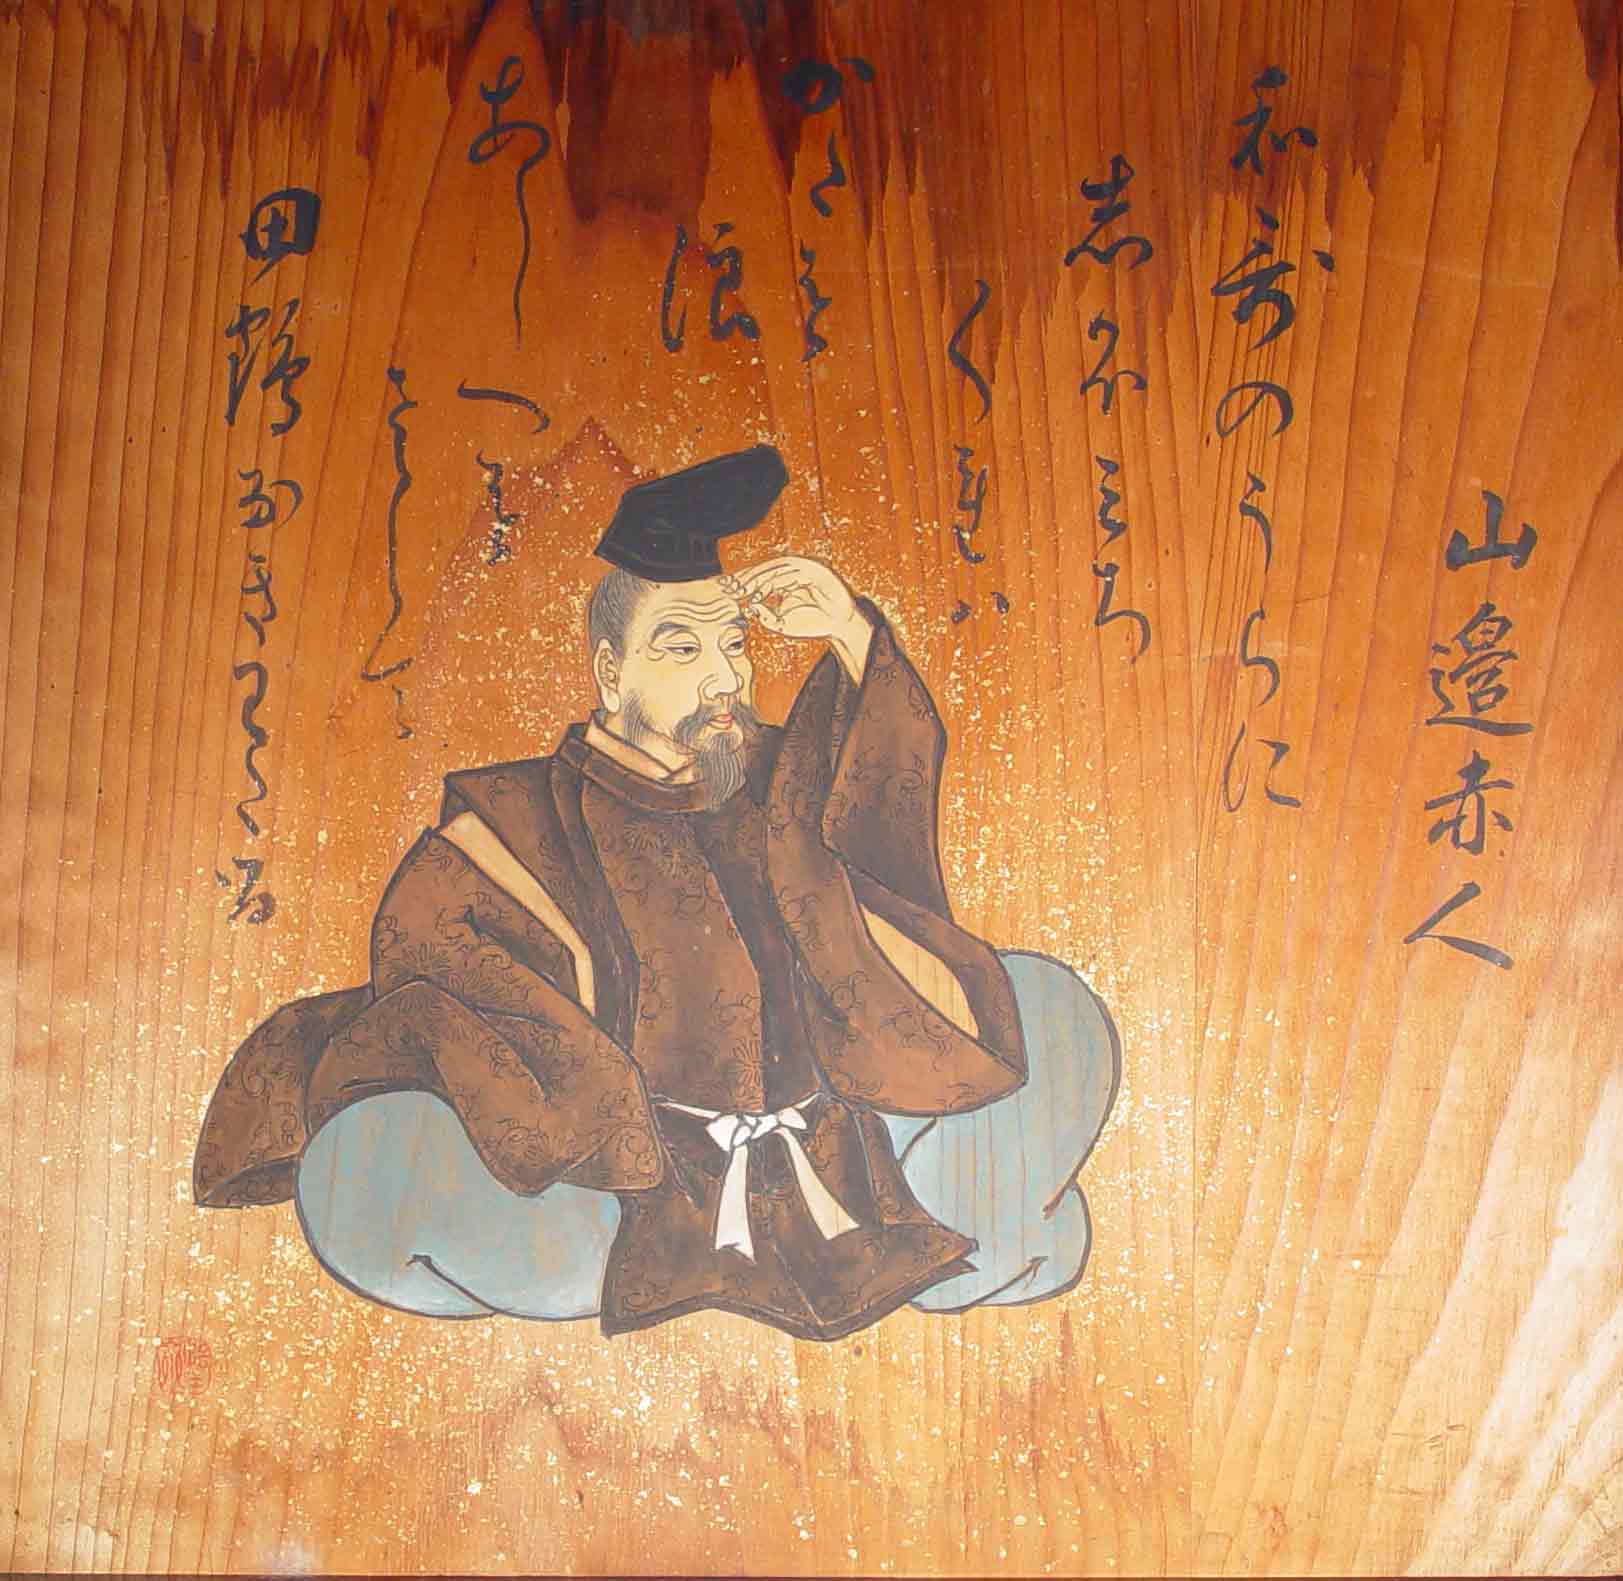 山邊赤人
和哥のうらに
志ほみち
くれハ
かたを
浪
あしへを
さして
田鶴なきわたる